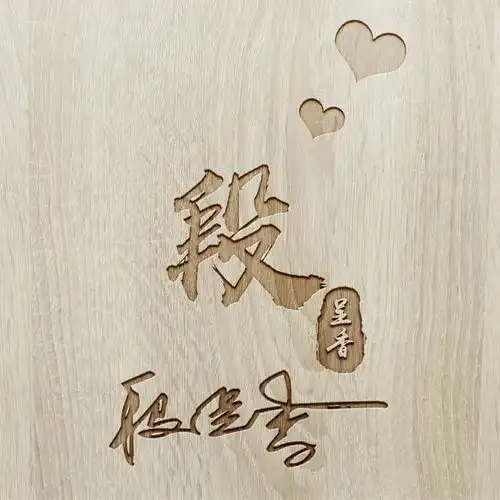 段
呈香
段呈香